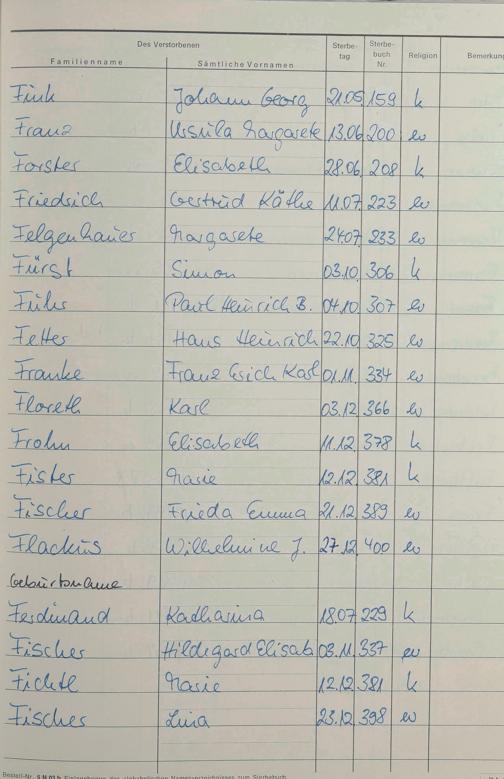 Des Verstorbenen
Familienname Sämtliche Vornamen Sterbe-tag Sterbe-buch Nr. Religion Bemerkung
Fink Johann Georg 21.05 159 k
Franz Ursula Margarete 13.06 200 ev
Forster Elisabeth 28.06 208 k
Friedrich Gertrud Käthe 11.07 223 ev
Felgenhauer Margarete 24.07 233 ev
Fürst Simon 03.10 306 k
Führ Paul Heinrich B. 04.10 307 ev
Fetter Hans Heinrich 22.10 325 ev
Franke Franz Erich Karl 01.11. 334 ev
Floreth Karl 03.12 366 ev
Frohn Elisabeth 11.12 378 k
Fister Marie 12.12 381 k
Fischer Frieda Emma 21.12 389 ev
Flackus Wilhelmine J. 27.12 400 ev
Geburtsname
Ferdinand Katharina 18.07 229 k
Fischer Hildegard Elisab 03.11. 337 ev
Fichtl Marie 12.12 381 k
Fischer Lina 23.12 398 ev